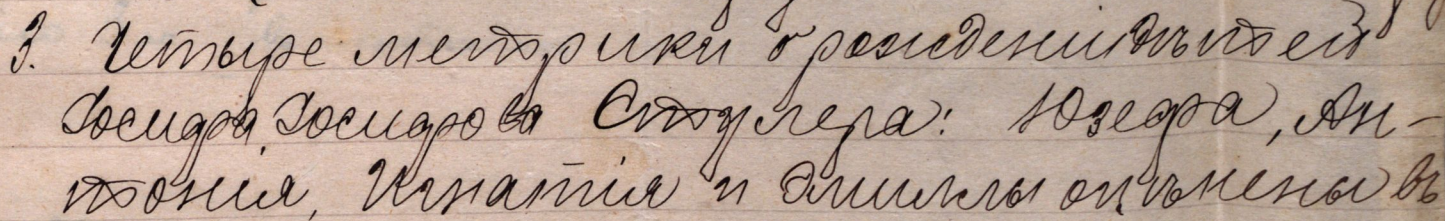 3. Четыре метрики о рожденіи дѣтей
Іосифа Іосифова Стулера: Юзефа, Ан-
тонія, Игнатія и Эмиліи оцѣнены въ